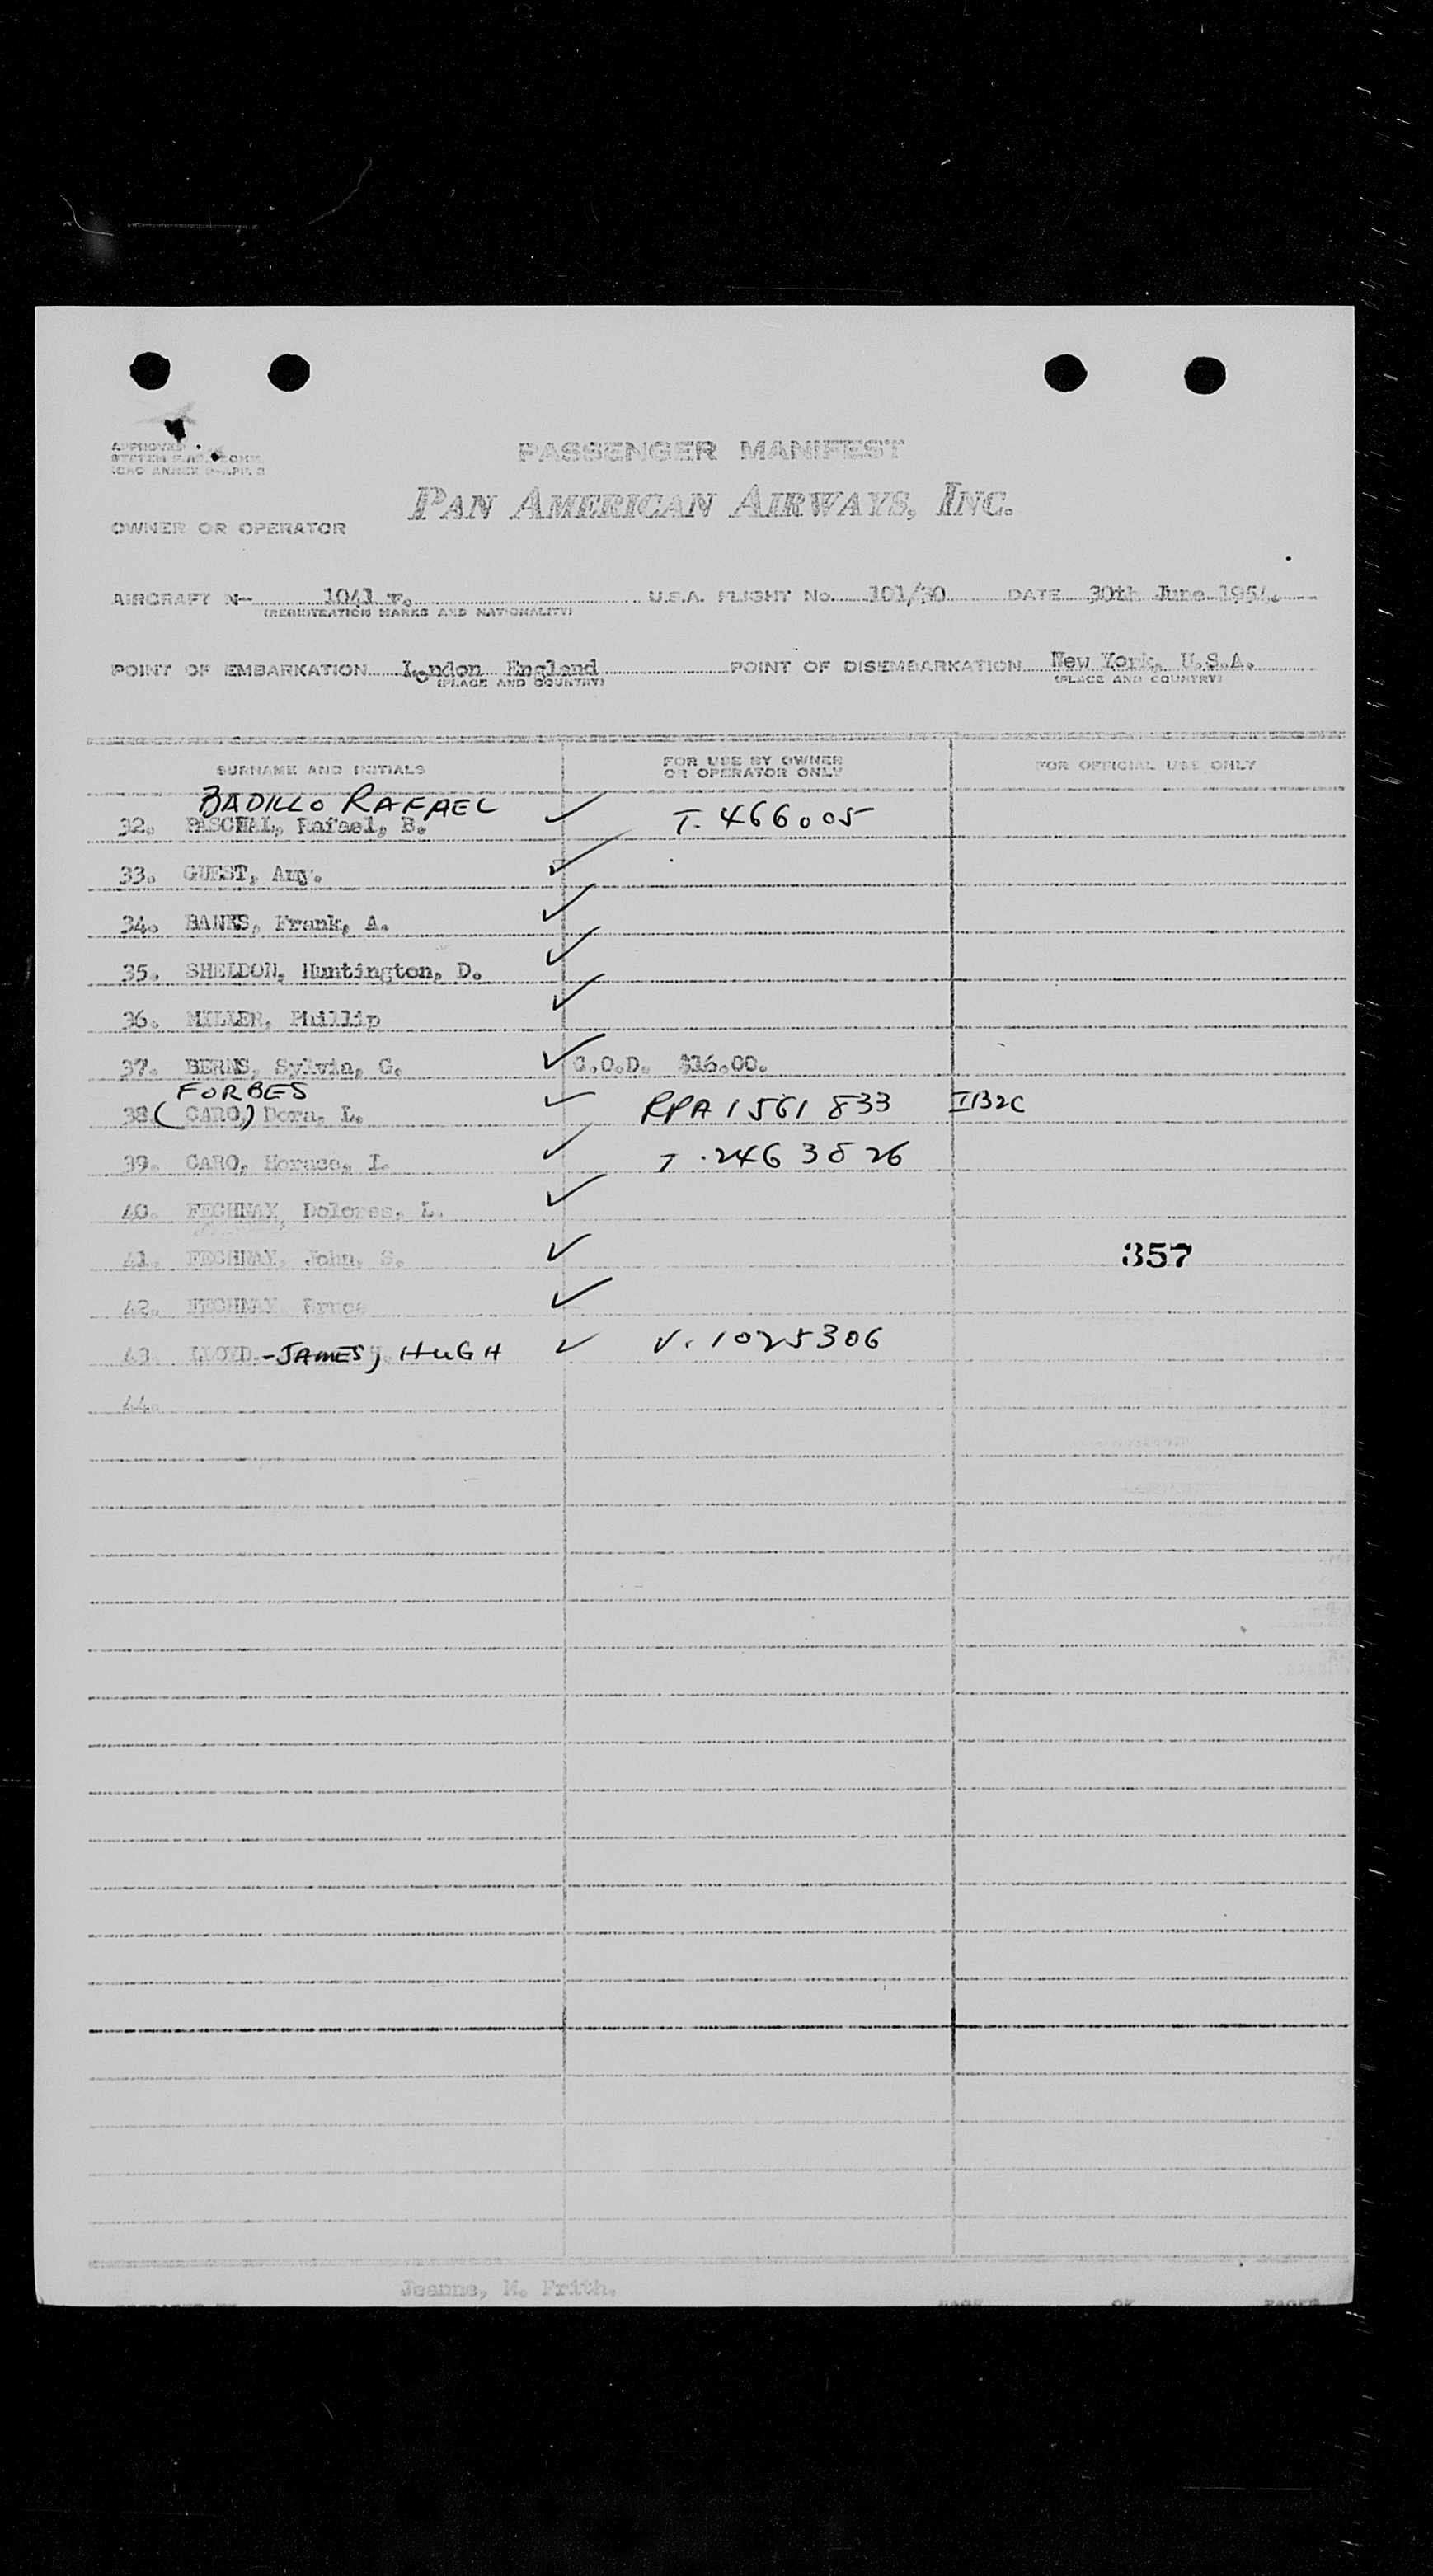 APPROVED
PASSENGER MANIFEST
PAN AMERICAN AIRWAYS, INC.
OWNER OR OPERATOR
AIRCRAFT N- 1041 U.S.A. FLIGHT No. 101/30 DATE 30th June 1954.
(REGISTRATION MARKS AND NATIONALITY)
POINT OF EMBARKATION London England POINT OF DISEMBARKATION New York, U.S.A.
(PLACE AND COUNTRY) (PLACE AND COUNTRY)
SURNAME AND INITIALS FOR USE BY OWNER OR OPERATOR ONLY FOR OFFICIAL USE ONLY
BADILLO RAFAEL ✓
32. PASCHAL, Rafael, B. T. 466005
33. GUEST, Amy. ✓
34. BANKS, Frank, A. ✓
35. SHELDON, Huntington, D. ✓
36. MILLER, Phillip ✓
37. BERNS, Sylvia, G. ✓ C.O.D. $16.00.
FORBES
38. (CARO,) Dora. L. ✓ RPA 1561 833 I132C
39. CARO, Horace, I. ✓ T. 2463826
40. FECHNAY, Dolores. L. ✓
41. FECHNAY, John, S. ✓ 357
42. FECHNAY Bruce ✓
43. LLOYD -JAMES, HUGH ✓ V. 1025306
44.
Jeanne, M. Frith.
PREPARED BY PAGE OF PAGES